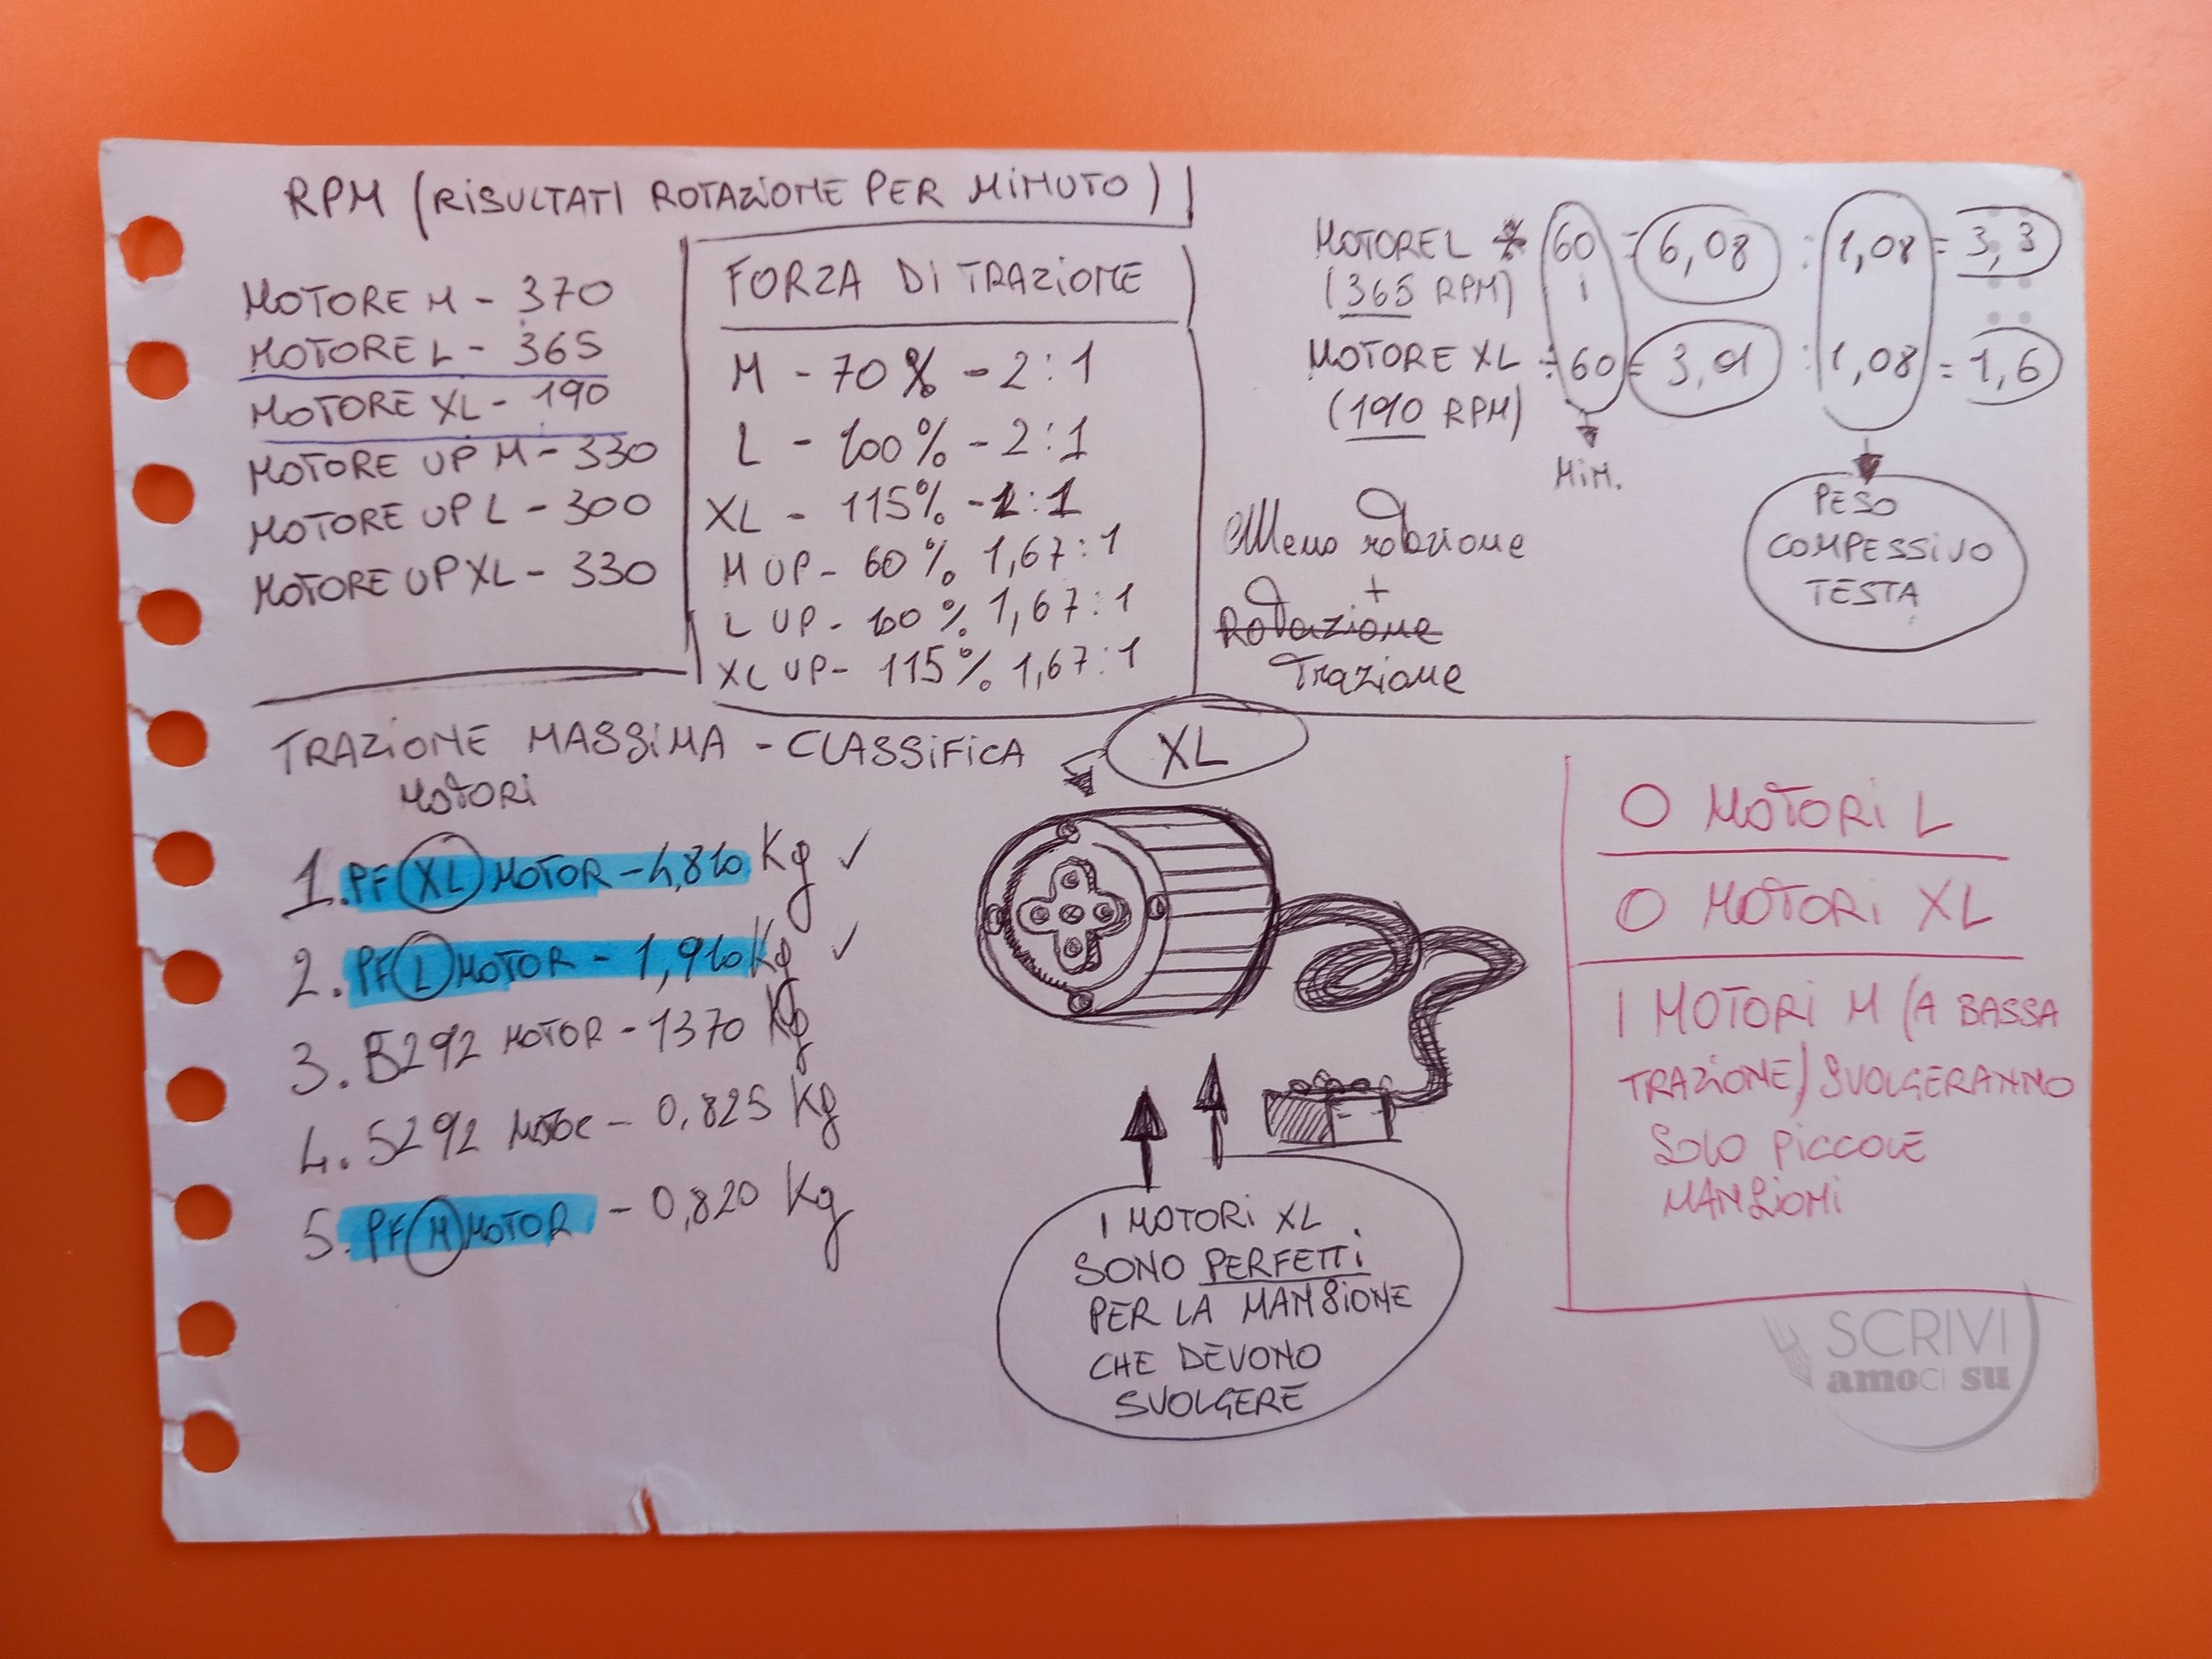 RPM (RISULTATI ROTAZIONE PER MINUTO)
MOTORE M - 370
MOTORE L - 365
MOTORE XL - 190
MOTORE UP M - 330
MOTORE UP L - 300
MOTORE UP XL - 330
FORZA DI TRAZIONE
M - 70% - 2:1
L - 100% - 2:1
XL - 115% - 1:1
M UP - 60% 1,67:1
L UP - 100% 1,67:1
XL UP - 115% 1,67:1
MOTORE L 60 = 6,08 : 1,08 = 3,3
(365 RPM)
MOTORE XL ÷ 60 = 3,01 : 1,08 = 1,6
(190 RPM)
MIN.
PESO
COMPESSIVO
TESTA
Meno rotazione
+
Rotazione
Trazione
TRAZIONE MASSIMA - CLASSIFICA
MOTORI
1. PF XL MOTOR - 4,810 Kg ✓
2. PF L MOTOR - 1,910 Kg ✓
3. 5292 MOTOR - 1370 Kg
4. 5292 - 0,825 Kg
5. PF M MOTOR - 0,820 Kg
XL
I MOTORI XL
SONO PERFETTI
PER LA MANSIONE
CHE DEVONO
SVOLGERE
O MOTORI L
O MOTORI XL
I MOTORI M (A BASSA
TRAZIONE) SVOLGERANNO
SOLO PICCOLE
MANSIONI
SCRIVI
amoci su